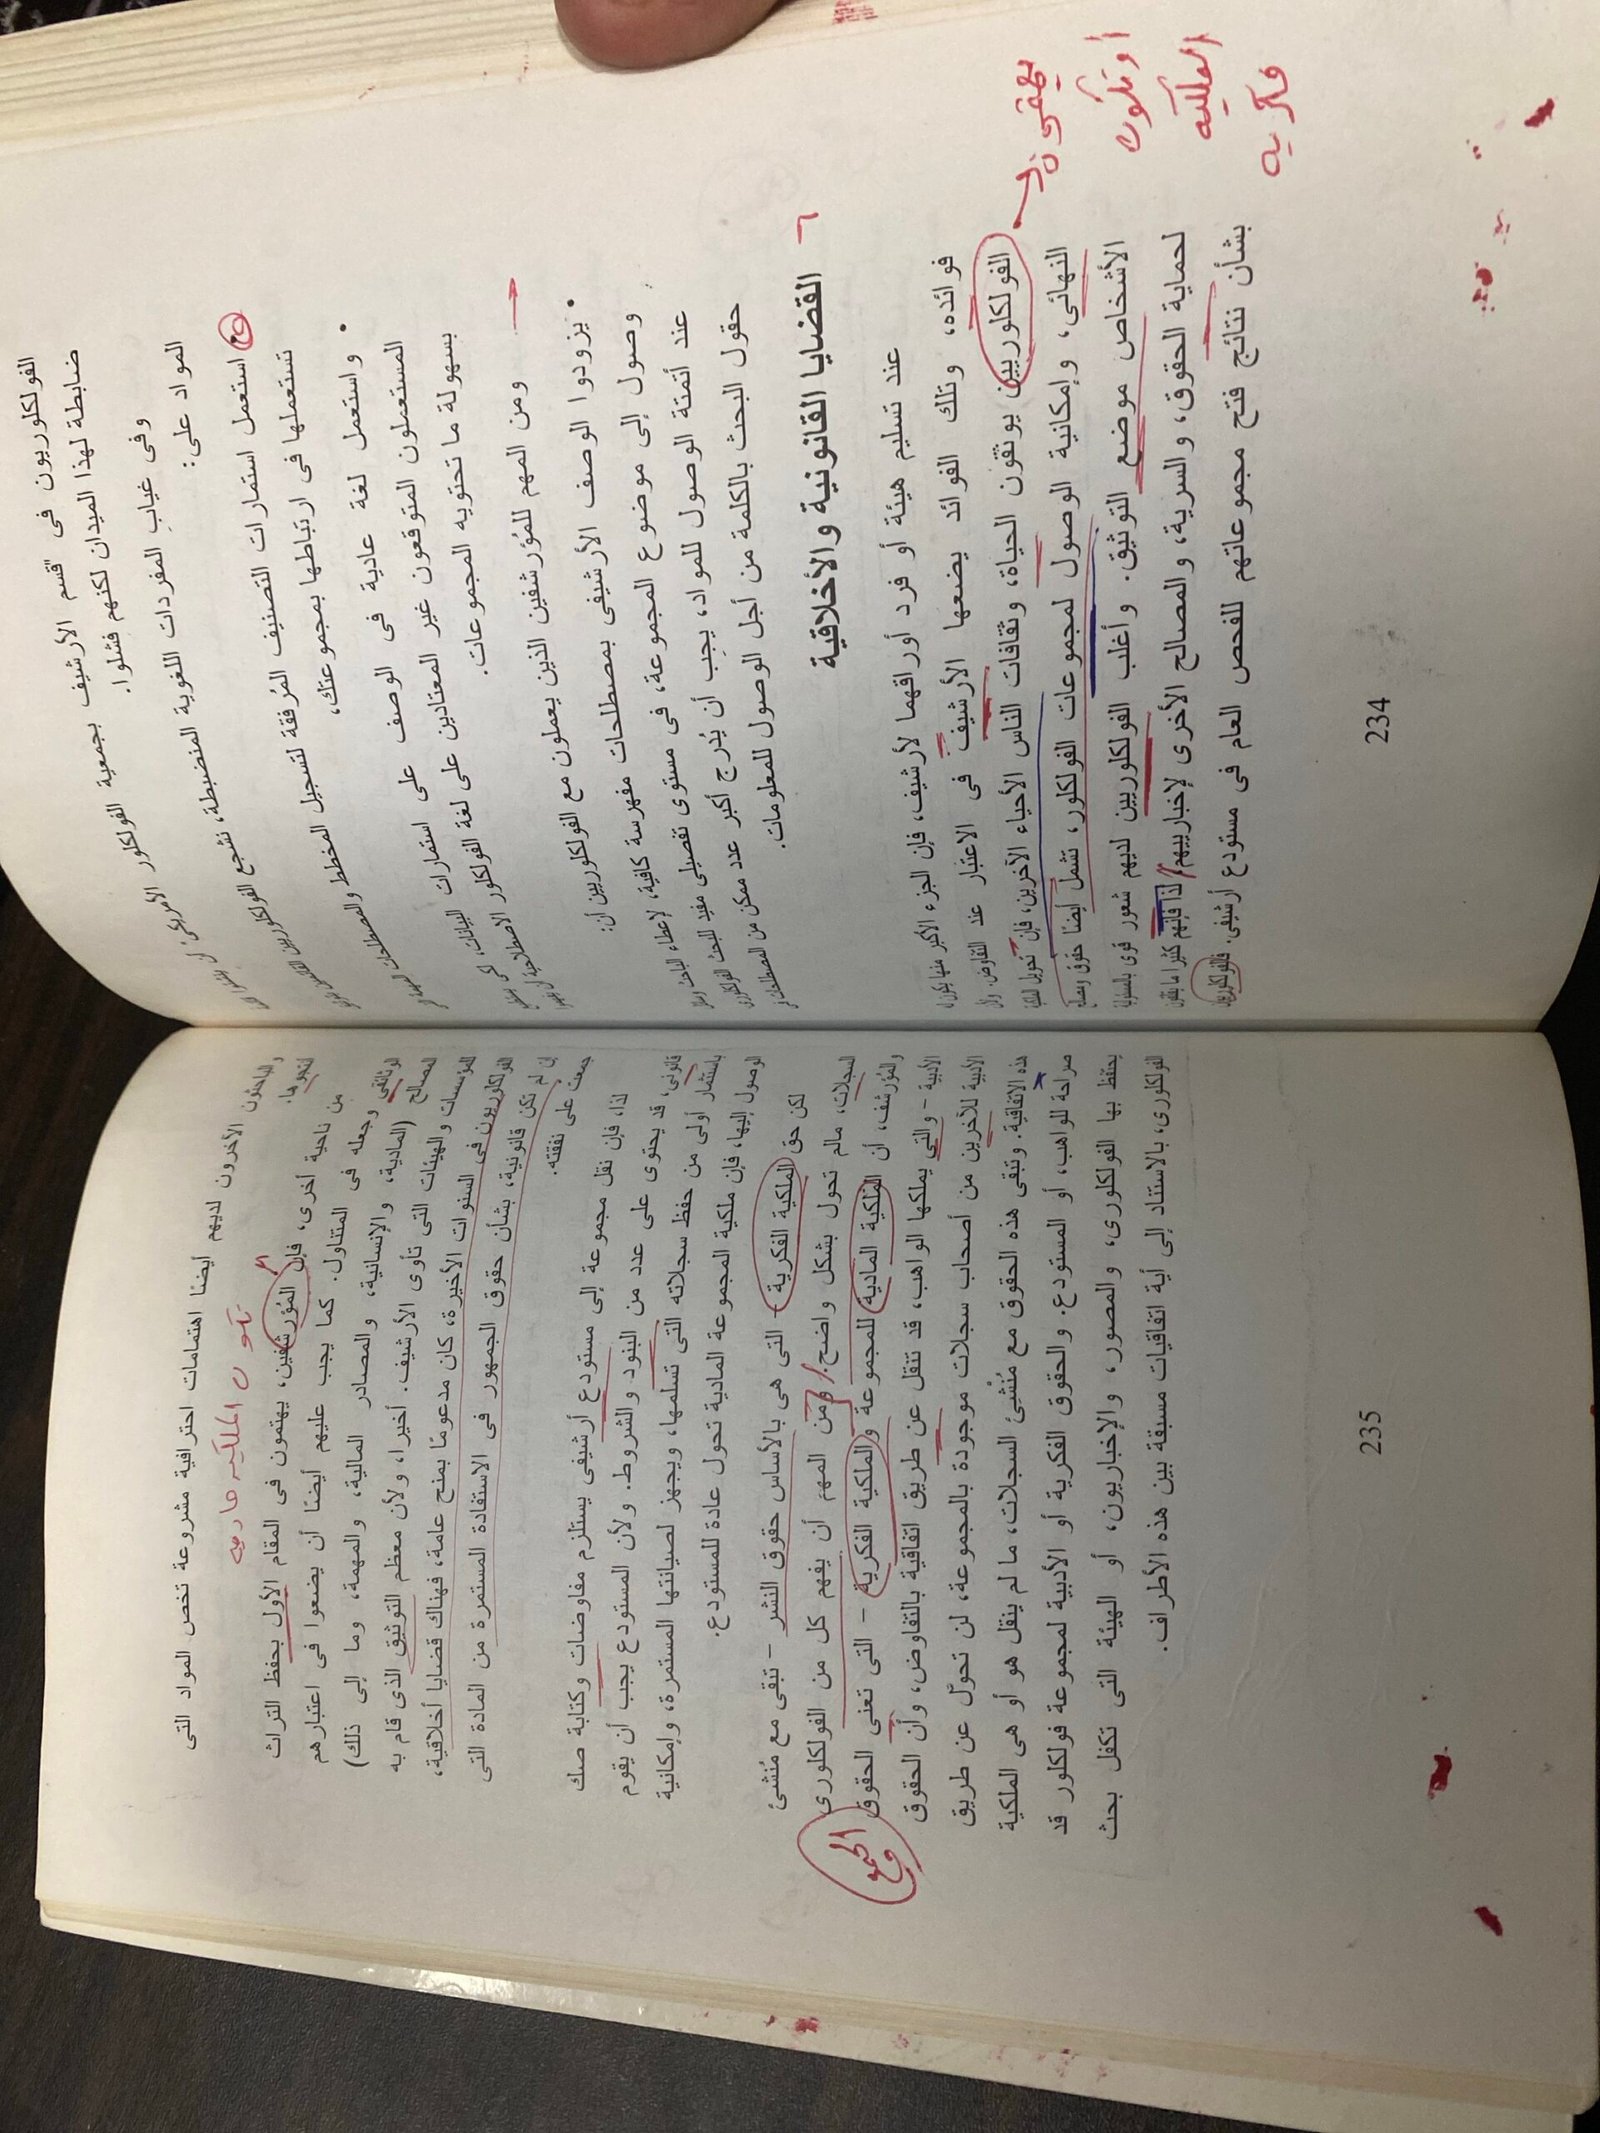 الفولكلوريون فى "قسم الأرشيف بجمعية الفولكلور الأمريكى"
ضابطة لهذا الميدان لكنهم فشلوا.
وفى غياب المفردات اللغوية المنضبطة، نشجع الفولكلوريين
المواد على:
استعمل استمارات التصنيف المُرفقة لتسجيل المخطط والمصطلحات
تستعملها فى ارتباطها بمجموعتك،
• واستعمل لغة عادية فى الوصف على استمارات البيانات، لكى
المستعملون المتوقعون غير المعتادين على لغة الفولكلور الاصطلاحية
بسهولة ما تحتويه المجموعات.
ومن المهم للمُؤرشفين الذين يعملون مع الفولكلوريين أن:
• يزودوا الوصف الأرشيفى بمصطلحات مفهرسة كافية، لإعطاء الباحث
وصول إلى موضوع المجموعة، فى مستوى تفصيلى مفيد للبحث الفولكلورى
عند أتمتة الوصول للمواد، يجب أن يُدرج أكبر عدد ممكن من المصطلحات فى
حقول البحث بالكلمة من أجل الوصول للمعلومات.
٦ القضايا القانونية والأخلاقية
عند تسليم هيئة أو فرد أوراقهما لأرشيف، فإن الجزء الأكبر منها يكون
فوائده، وتلك الفوائد يضعها الأرشيف فى الاعتبار عند التفاوض.
الفولكلوريين يوثقون الحياة، وثقافات الناس الأحياء الآخرين، فإن تحويل الملكية
النهائى، وإمكانية الوصول لمجموعات الفولكلور، تشمل أيضًا حقوق
الأشخاص موضع التوثيق. وأغلب الفولكلوريين لديهم شعور قوى بالمسئولية
لحماية الحقوق، والسرية، والمصالح الأخرى لإخبارييهم، لذا فإنهم كثيرا ما
بشأن نتائج فتح مجموعاتهم للفحص العام فى مستودع أرشيفى. فالفولكلوريون
يهتفى
أو تكون
الملكية
فكرية
234
والباحثون الآخرون لديهم أيضًا اهتمامات احترافية مشروعة تخص المواد التى
أنتجوها.
تكون الملكيه ماديه
من ناحية أخرى، فإن المُؤرشفين، يهتمون فى المقام الأول بحفظ التراث
الوثائقى وجعله فى المتناول. كما يجب عليهم أيضًا أن يضعوا فى اعتبارهم
المصالح (المادية، والإنسانية، والمصادر المالية، والمهمة، وما إلى ذلك)
للمؤسسات والهيئات التى تأوى الأرشيف. أخيرا، ولأن معظم التوثيق الذى قام به
الفولكلوريون فى السنوات الأخيرة، كان مدعومًا بمنح عامة، فهناك قضايا أخلاقية،
إن لم تكن قانونية، بشأن حقوق الجمهور فى الاستفادة المستمرة من المادة التى
جمعت على نفقته.
لذا، فإن نقل مجموعة إلى مستودع أرشيفى يستلزم مفاوضات وكتابة صك
قانونى، قد يحتوى على عدد من البنود والشروط. ولأن المستودع يجب أن يقوم
باستثمار أولى من حفظ سجلاته التى تسلمها، ويجهز لصيانتها المستمرة، وإمكانية
الوصول إليها، فإن ملكية المجموعة المادية تحول عادة للمستودع.
لكن حق الملكية الفكرية – التى هى بالأساس حقوق النشر – تبقى مع مُنشئ
السجلات، مالم تحول بشكل واضح. ومن المهم أن يفهم كل من الفولكلورى
والمُؤرشف، أن الملكية المادية للمجموعة والملكية الفكرية – التى تعنى الحقوق
الأدبية – والتى يملكها الواهب، قد تنتقل عن طريق اتفاقية بالتفاوض، وأن الحقوق
الأدبية للآخرين من أصحاب سجلات موجودة بالمجموعة، لن تحوَّل عن طريق
هذه الاتفاقية. وتبقى هذه الحقوق مع مُنْشئ السجلات، ما لم ينقل هو أو هى الملكية
صراحة للواهب، أو المستودع. والحقوق الفكرية أو الأدبية لمجموعة فولكلور قد
يحتفظ بها الفولكلورى، والمصور، والإخباريون، أو الهيئة التى تكفل بحث
الفولكلورى، بالاستناد إلى أية اتفاقيات مسبقة بين هذه الأطراف.
235